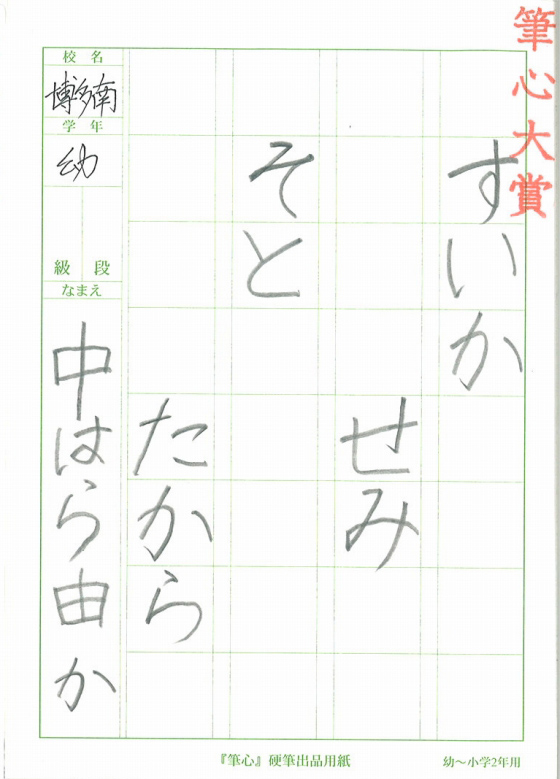 筆心大賞
すいか
せみ
そと
たから
校名
博多南
学年
幼
級 段
なまえ
中はら由か
『筆心』硬筆出品用紙
幼～小学2年用